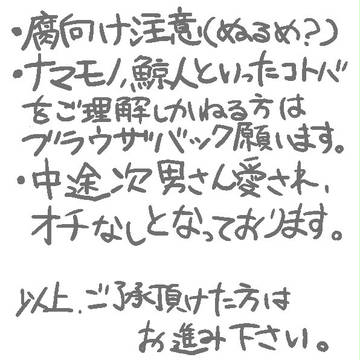 ・腐向け注意(ぬるめ?)
・ナマモノ,鯨人といったコトバ
をご理解しかねる方は
ブラウザバック願います。
・中途次男さん愛され,
オチなしとなっております。
以上,ご了承頂けた方は
お進み下さい。